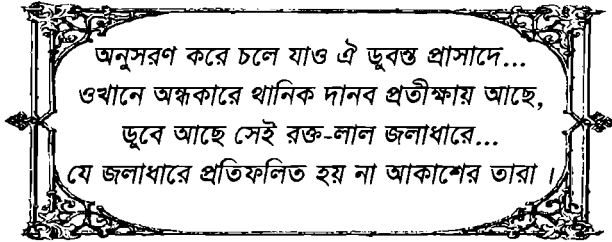 অনুসরণ করে চলে যাও ঐ ডুবন্ত প্রাসাদে...
ওখানে অন্ধকারে থানিক দানব প্রতীক্ষায় আছে,
ডুবে আছে সেই রক্ত-লাল জলাধারে...
যে জলাধারে প্রতিফলিত হয় না আকাশের তারা।